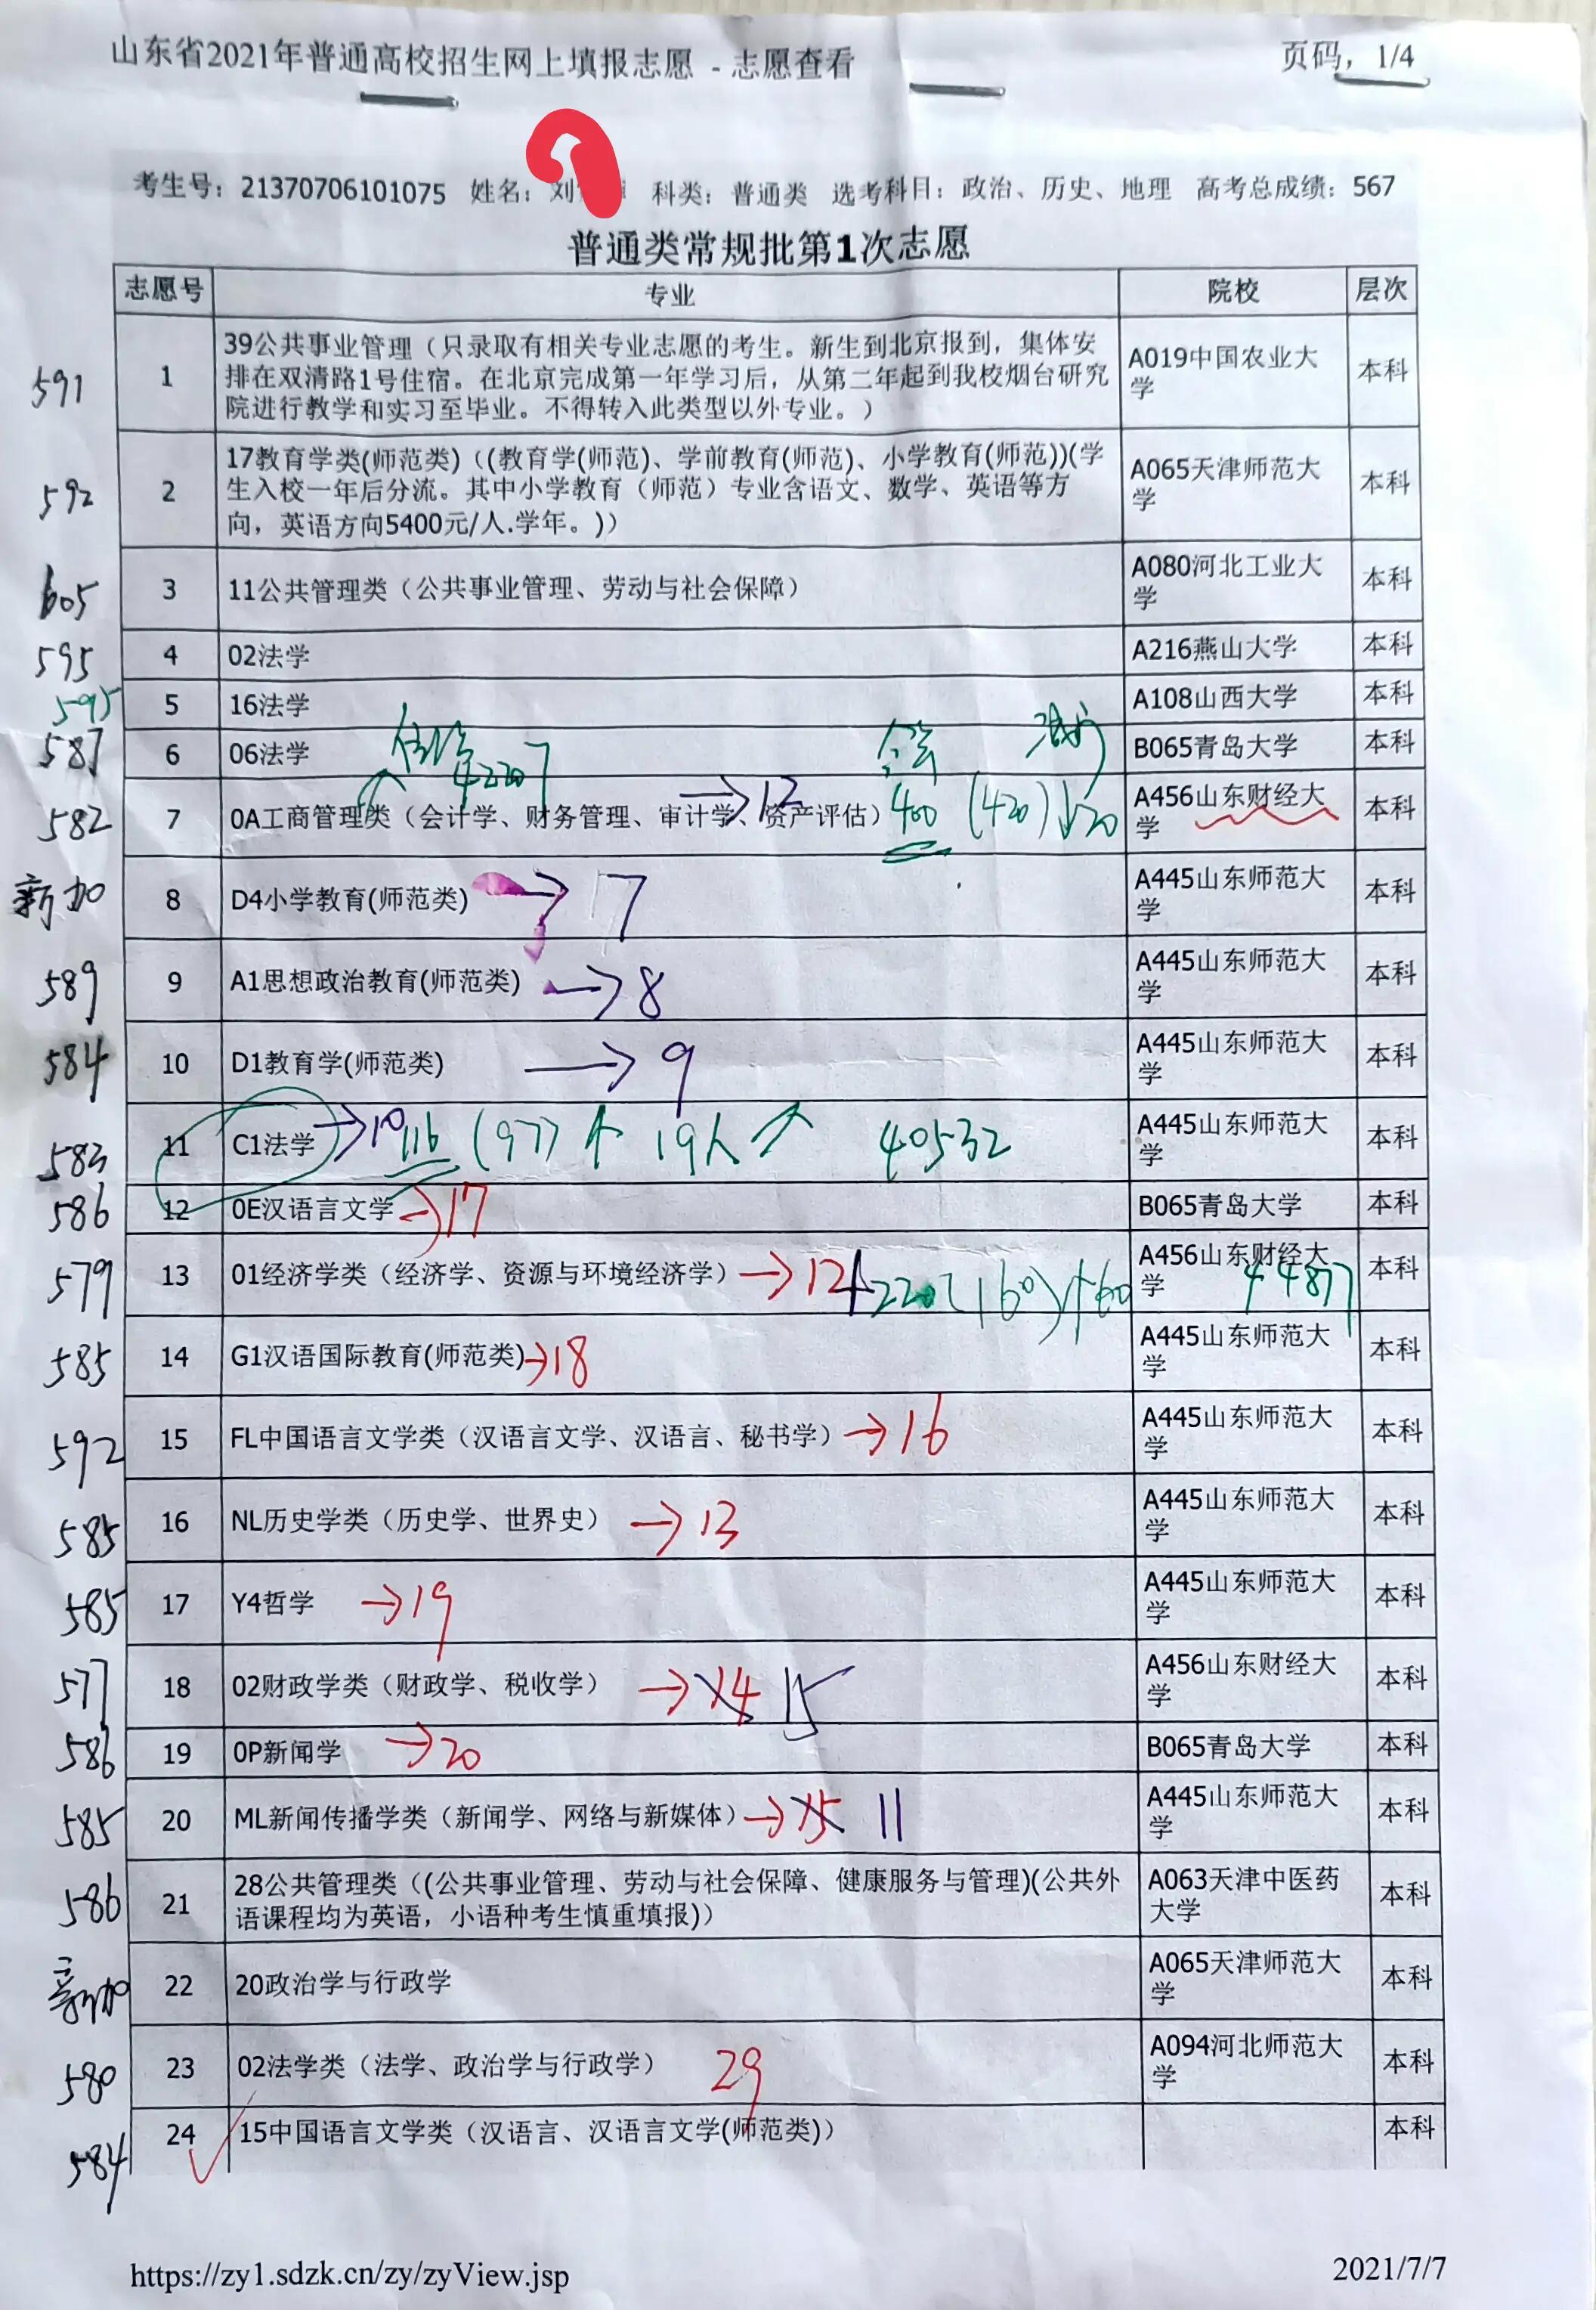 山东省2021年普通高校招生网上填报志愿 - 志愿查看
页码，1/4
考生号：21370706101075 姓名：刘 科类：普通类 选考科目：政治、历史、地理 高考总成绩：567
普通类常规批第1次志愿
志愿号 专业 院校 层次
591 1 39公共事业管理（只录取有相关专业志愿的考生。新生到北京报到，集体安
排在双清路1号住宿。在北京完成第一年学习后，从第二年起到我校烟台研究
院进行教学和实习至毕业。不得转入此类型以外专业。）
A019中国农业大
学
本科
592 2 17教育学类(师范类)（(教育学(师范)、学前教育(师范)、小学教育(师范))(学
生入校一年后分流。其中小学教育（师范）专业含语文、数学、英语等方
向，英语方向5400元/人.学年。)）
A065天津师范大
学
本科
605 3 11公共管理类（公共事业管理、劳动与社会保障）
A080河北工业大
学
本科
595 4 02法学 A216燕山大学 本科
595 5 16法学 A108山西大学 本科
587 6 06法学 B065青岛大学 本科
582 7 0A工商管理类（会计学、财务管理、审计学、资产评估） →12 400 (420)↓20
A456山东财经大
学
本科
新加 8 D4小学教育(师范类) →7
A445山东师范大
学
本科
589 9 A1思想政治教育(师范类) →8
A445山东师范大
学
本科
584 10 D1教育学(师范类) →9
A445山东师范大
学
本科
583 11 C1法学 →10 116 (97)↑ 19人↗ 40532
A445山东师范大
学
本科
586 12 0E汉语言文学 →17 B065青岛大学 本科
579 13 01经济学类（经济学、资源与环境经济学） →12 220 (160)↑60
A456山东财经大
学
44877
本科
585 14 G1汉语国际教育(师范类) →18
A445山东师范大
学
本科
592 15 FL中国语言文学类（汉语言文学、汉语言、秘书学） →16
A445山东师范大
学
本科
585 16 NL历史学类（历史学、世界史） →13
A445山东师范大
学
本科
585 17 Y4哲学 →19
A445山东师范大
学
本科
577 18 02财政学类（财政学、税收学） →14 15
A456山东财经大
学
本科
586 19 0P新闻学 →20 B065青岛大学 本科
585 20 ML新闻传播学类（新闻学、网络与新媒体） →15 11
A445山东师范大
学
本科
586 21 28公共管理类（(公共事业管理、劳动与社会保障、健康服务与管理)(公共外
语课程均为英语，小语种考生慎重填报)）
A063天津中医药
大学
本科
新加 22 20政治学与行政学
A065天津师范大
学
本科
580 23 02法学类（法学、政治学与行政学） 29
A094河北师范大
学
本科
584 24 15中国语言文学类（汉语言、汉语言文学(师范类)） 本科
https://zy1.sdzk.cn/zy/zyView.jsp
2021/7/7